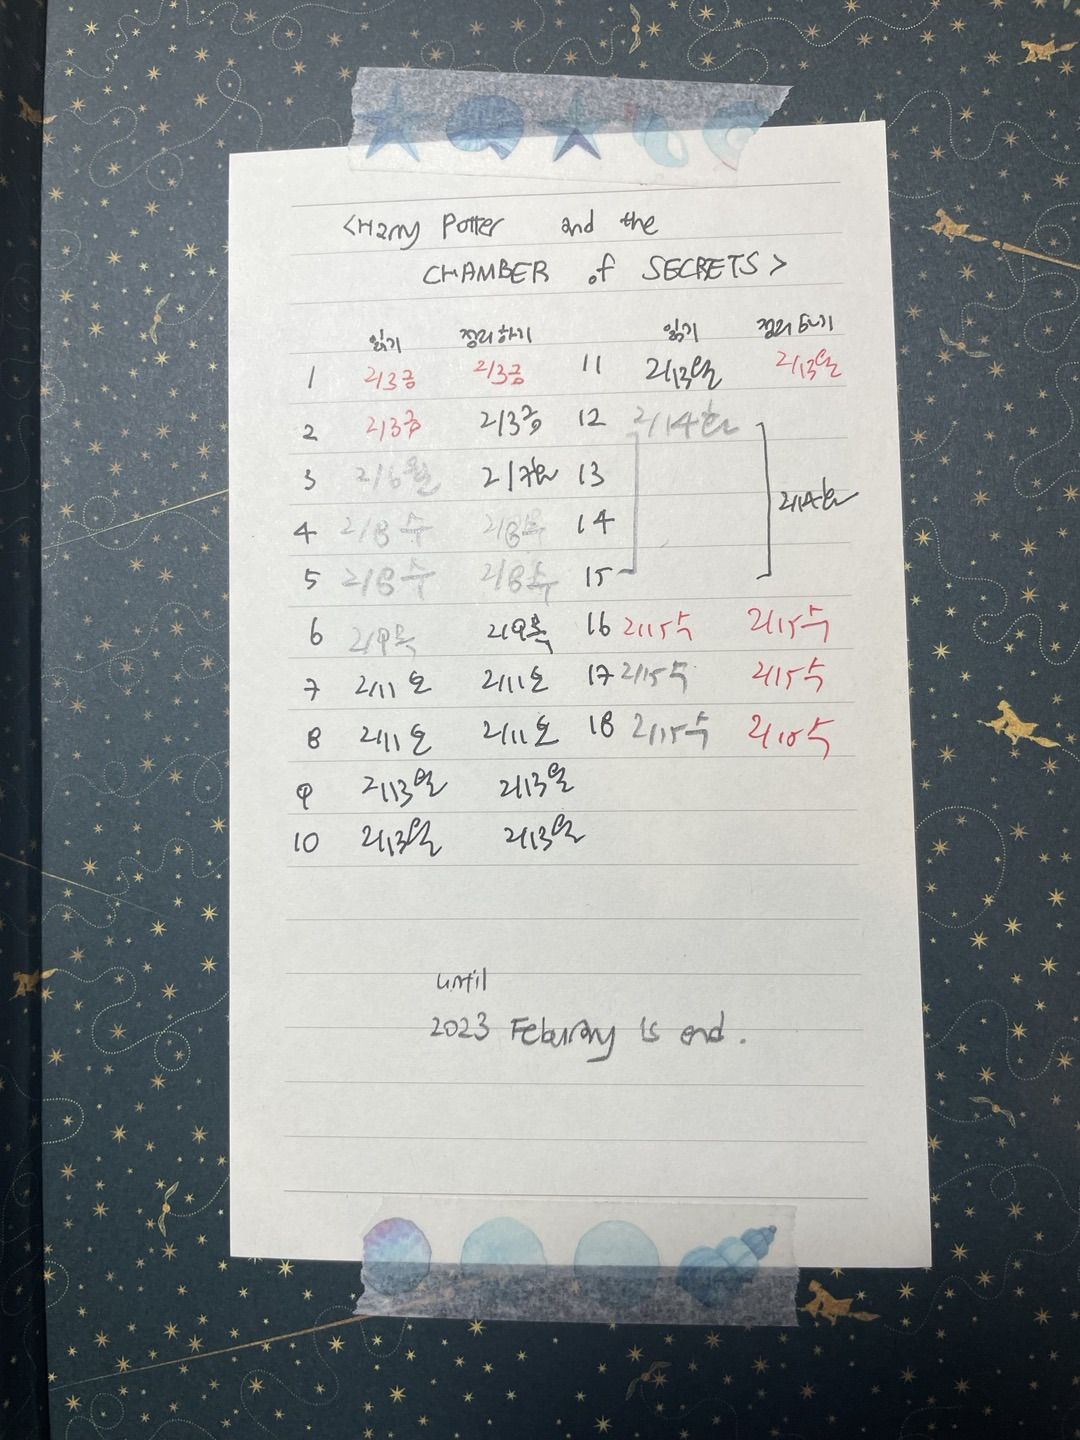 <Harry Potter and the
CHAMBER of SECRETS>
읽기 정리하기 읽기 정리하기
1 2/3금 2/3금 11 2/13월 2/13월
2 2/3금 2/3금 12 2/14화
3 2/6월 2/7화 13 2/14화
4 2/8수 2/8수 14
5 2/8수 2/8수 15
6 2/9목 2/9목 16 2/15수 2/15수
7 2/11토 2/11토 17 2/15수 2/15수
8 2/11토 2/11토 18 2/15수 2/15수
9 2/13월 2/13월
10 2/13월 2/13월
until
2023 Feburary is end.